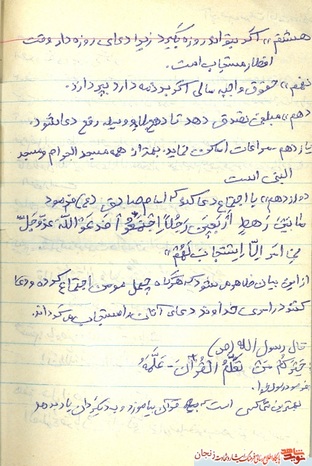 هشتم» اگر بتواند روزه بگیرد زیرا دعای روزه دار وقت
افطار مستجاب است.
نهم» حقوق واجبه مالی اگر بر ذمه دارد بپردازد.
دهم» مبلغی تصدق دهد تا دفع بلا رفع دعا شود.
یازدهم مراعات اماکن نماید بهتر از همه مسجد الحرام و مسجد
النبی است
دوازدهم» با اجتماع دعا کند که امام صادق (ع) فرمود
ما مِنْ رَهْطٍ أَرْبَعِینَ رَجُلاً اجْتَمَعُوا فَدَعَوُا اللَّهَ عَزَّوَجَلَّ
فِی امرٍ اِلّا اِسْتَجابَ لَهُمْ»
از این بیان ظاهر میشود که هرگاه چهل مومن اجتماع کرده و دعا
کنند در امری خداوند دعای آنان را مستجاب می گرداند.
قال رسول الله (ص)
خَیْرُکُمْ مَنْ تَعَلَّمَ الْقُرْآنَ وَ عَلَّمَهُ
فرمود رسول خدا
بهترین شما کسی است که قرآن بیاموزد و به دیگران یاد بدهد